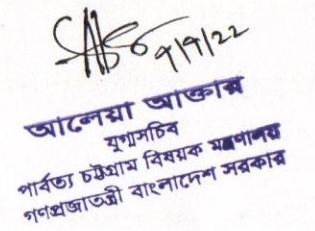 ৭/৭/২২
আলেয়া আক্তার
যুগ্মসচিব
পার্বত্য চট্টগ্রাম বিষয়ক মন্ত্রণালয়
গণপ্রজাতন্ত্রী বাংলাদেশ সরকার